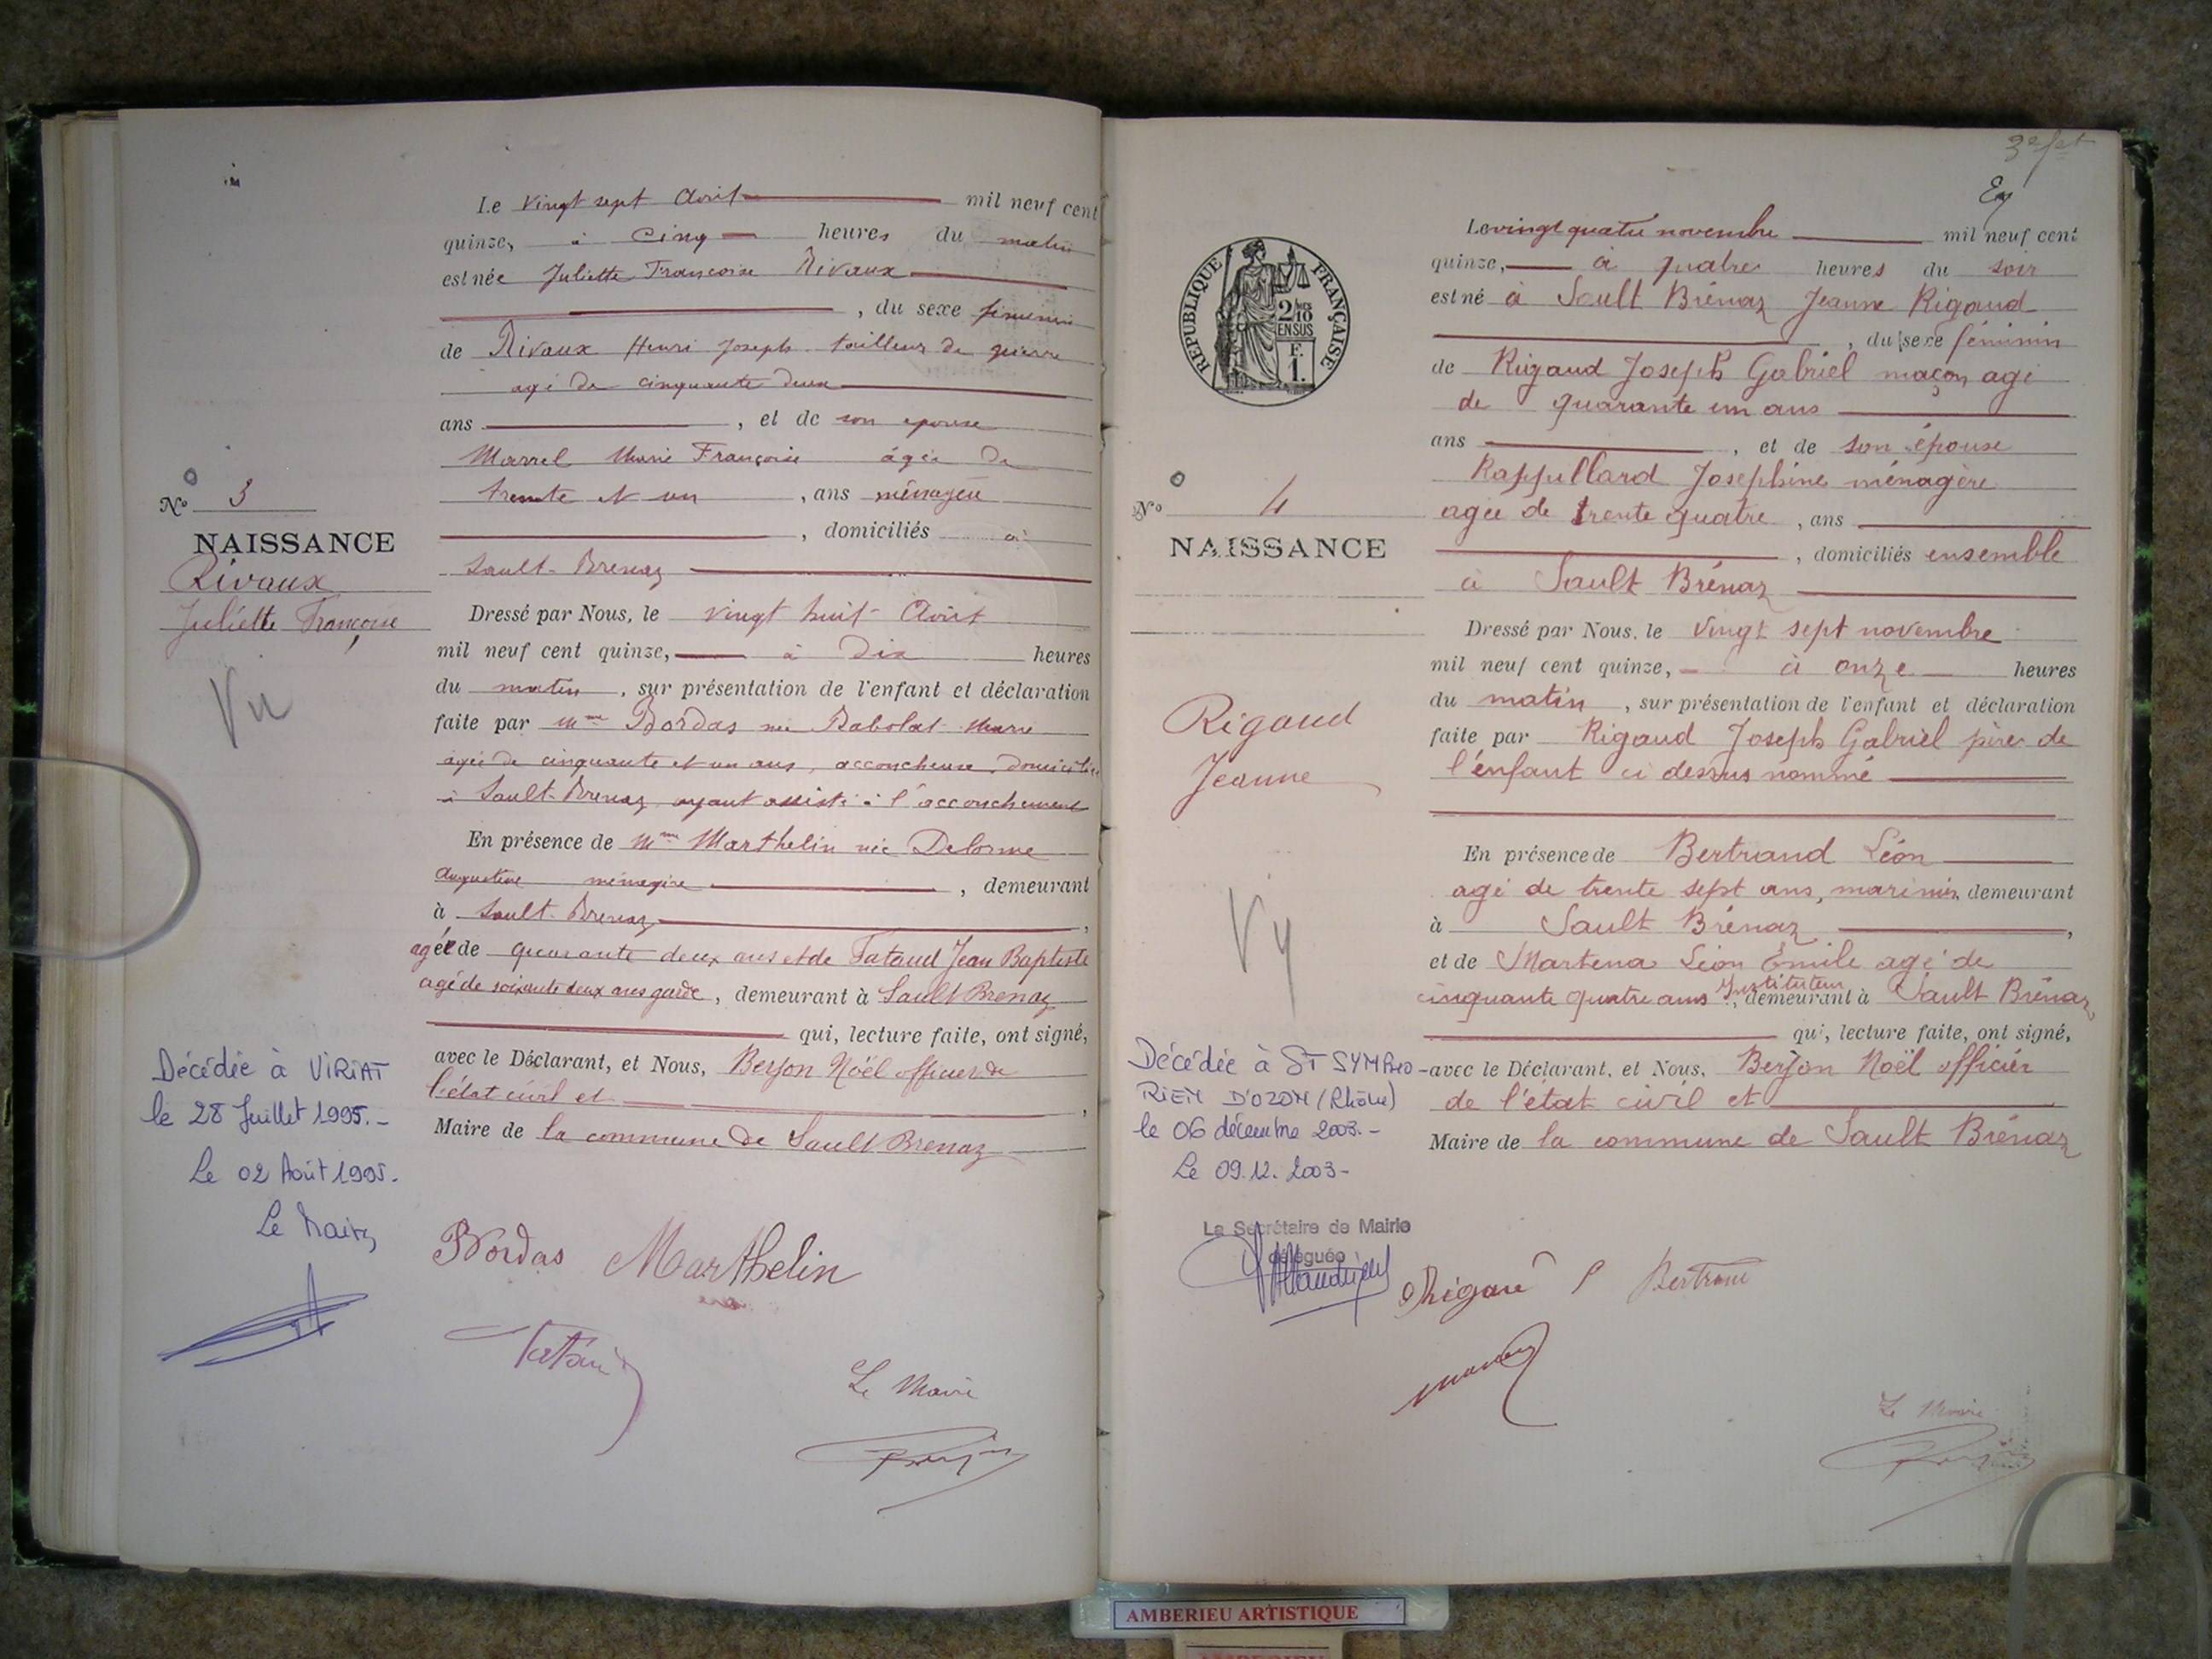 Le vingt sept Août mil neuf cent
quinze, à cinq heures du matin
est née Juliette Françoise Rivaux
, du sexe féminin
de Rivaux Henri Joseph tailleur de pierre
agé de cinquante deux
ans , et de son epouse
Marrel Marie Françoise âgée de
trente et un , ans ménagère
, domiciliés à
Sault-Brenaz
Dressé par Nous, le vingt huit Août
mil neuf cent quinze, à Dix heures
du matin , sur présentation de l'enfant et déclaration
faite par Mme Bordas née Babolat Marie
agée de cinquante et un ans, accoucheuse, domiciliée
à Sault-Brenaz, ayant assisté à l'accouchement
En présence de Mme Marthelin née Delorme
Augustine ménagère , demeurant
à Sault-Brenaz ,
agée de quarante deux ans et de Tataud Jean Baptiste
agé de soixante deux ans garde , demeurant à Sault Brenaz
qui, lecture faite, ont signé,
avec le Déclarant, et Nous, Berjon Noël officier de
l'état civil et ,
Maire de la commune de Sault Brenaz
Bordas Marthelin
Le Maire
No 3
NAISSANCE
Rivaux
Juliette Françoise
Vu
Décédée à VIRIAT
le 28 Juillet 1995.-
Le 02 Août 1995.
Le Maire,
Le vingt quatre novembre mil neuf cent
quinze, à quatre heures du soir
est né à Sault Brénaz Jeanne Rigaud
, du sexe féminin
de Rigaud Joseph Gabriel maçon agé
de quarante un ans
ans , et de son épouse
Rappillard Joséphine ménagère
agée de trente quatre , ans
, domiciliés ensemble
à Sault Brénaz
Dressé par Nous, le vingt sept novembre
mil neuf cent quinze, à onze heures
du matin , sur présentation de l'enfant et déclaration
faite par Rigaud Joseph Gabriel père de
l'enfant ci dessus nommé
En présence de Bertrand Léon
agé de trente sept ans, marinier, demeurant
à Sault Brénaz ,
et de Martena Léon Emile agé de
cinquante quatre ans Instituteur, demeurant à Sault Brénaz
qui, lecture faite, ont signé,
avec le Déclarant, et Nous, Berjon Noël officier
de l'état civil et
Maire de la commune de Sault Brénaz
Bertrand
Le Maire
RÉPUBLIQUE FRANÇAISE
2/10 EN SUS
F.
1.
No 4
NAISSANCE
Rigaud
Jeanne
Vu
Décédée à ST SYMPHO-
RIEN D'OZON (Rhône)
le 06 décembre 2003.-
Le 09.12.2003-
La Secrétaire de Mairie
déléguée
AMBERIEU ARTISTIQUE
AMBERIEU